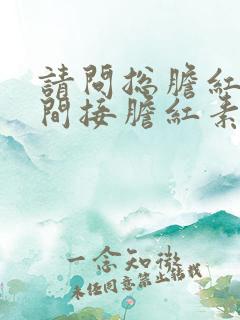 請問總膽紅
間接膽紅素
一念知微
未經同意禁止轉載